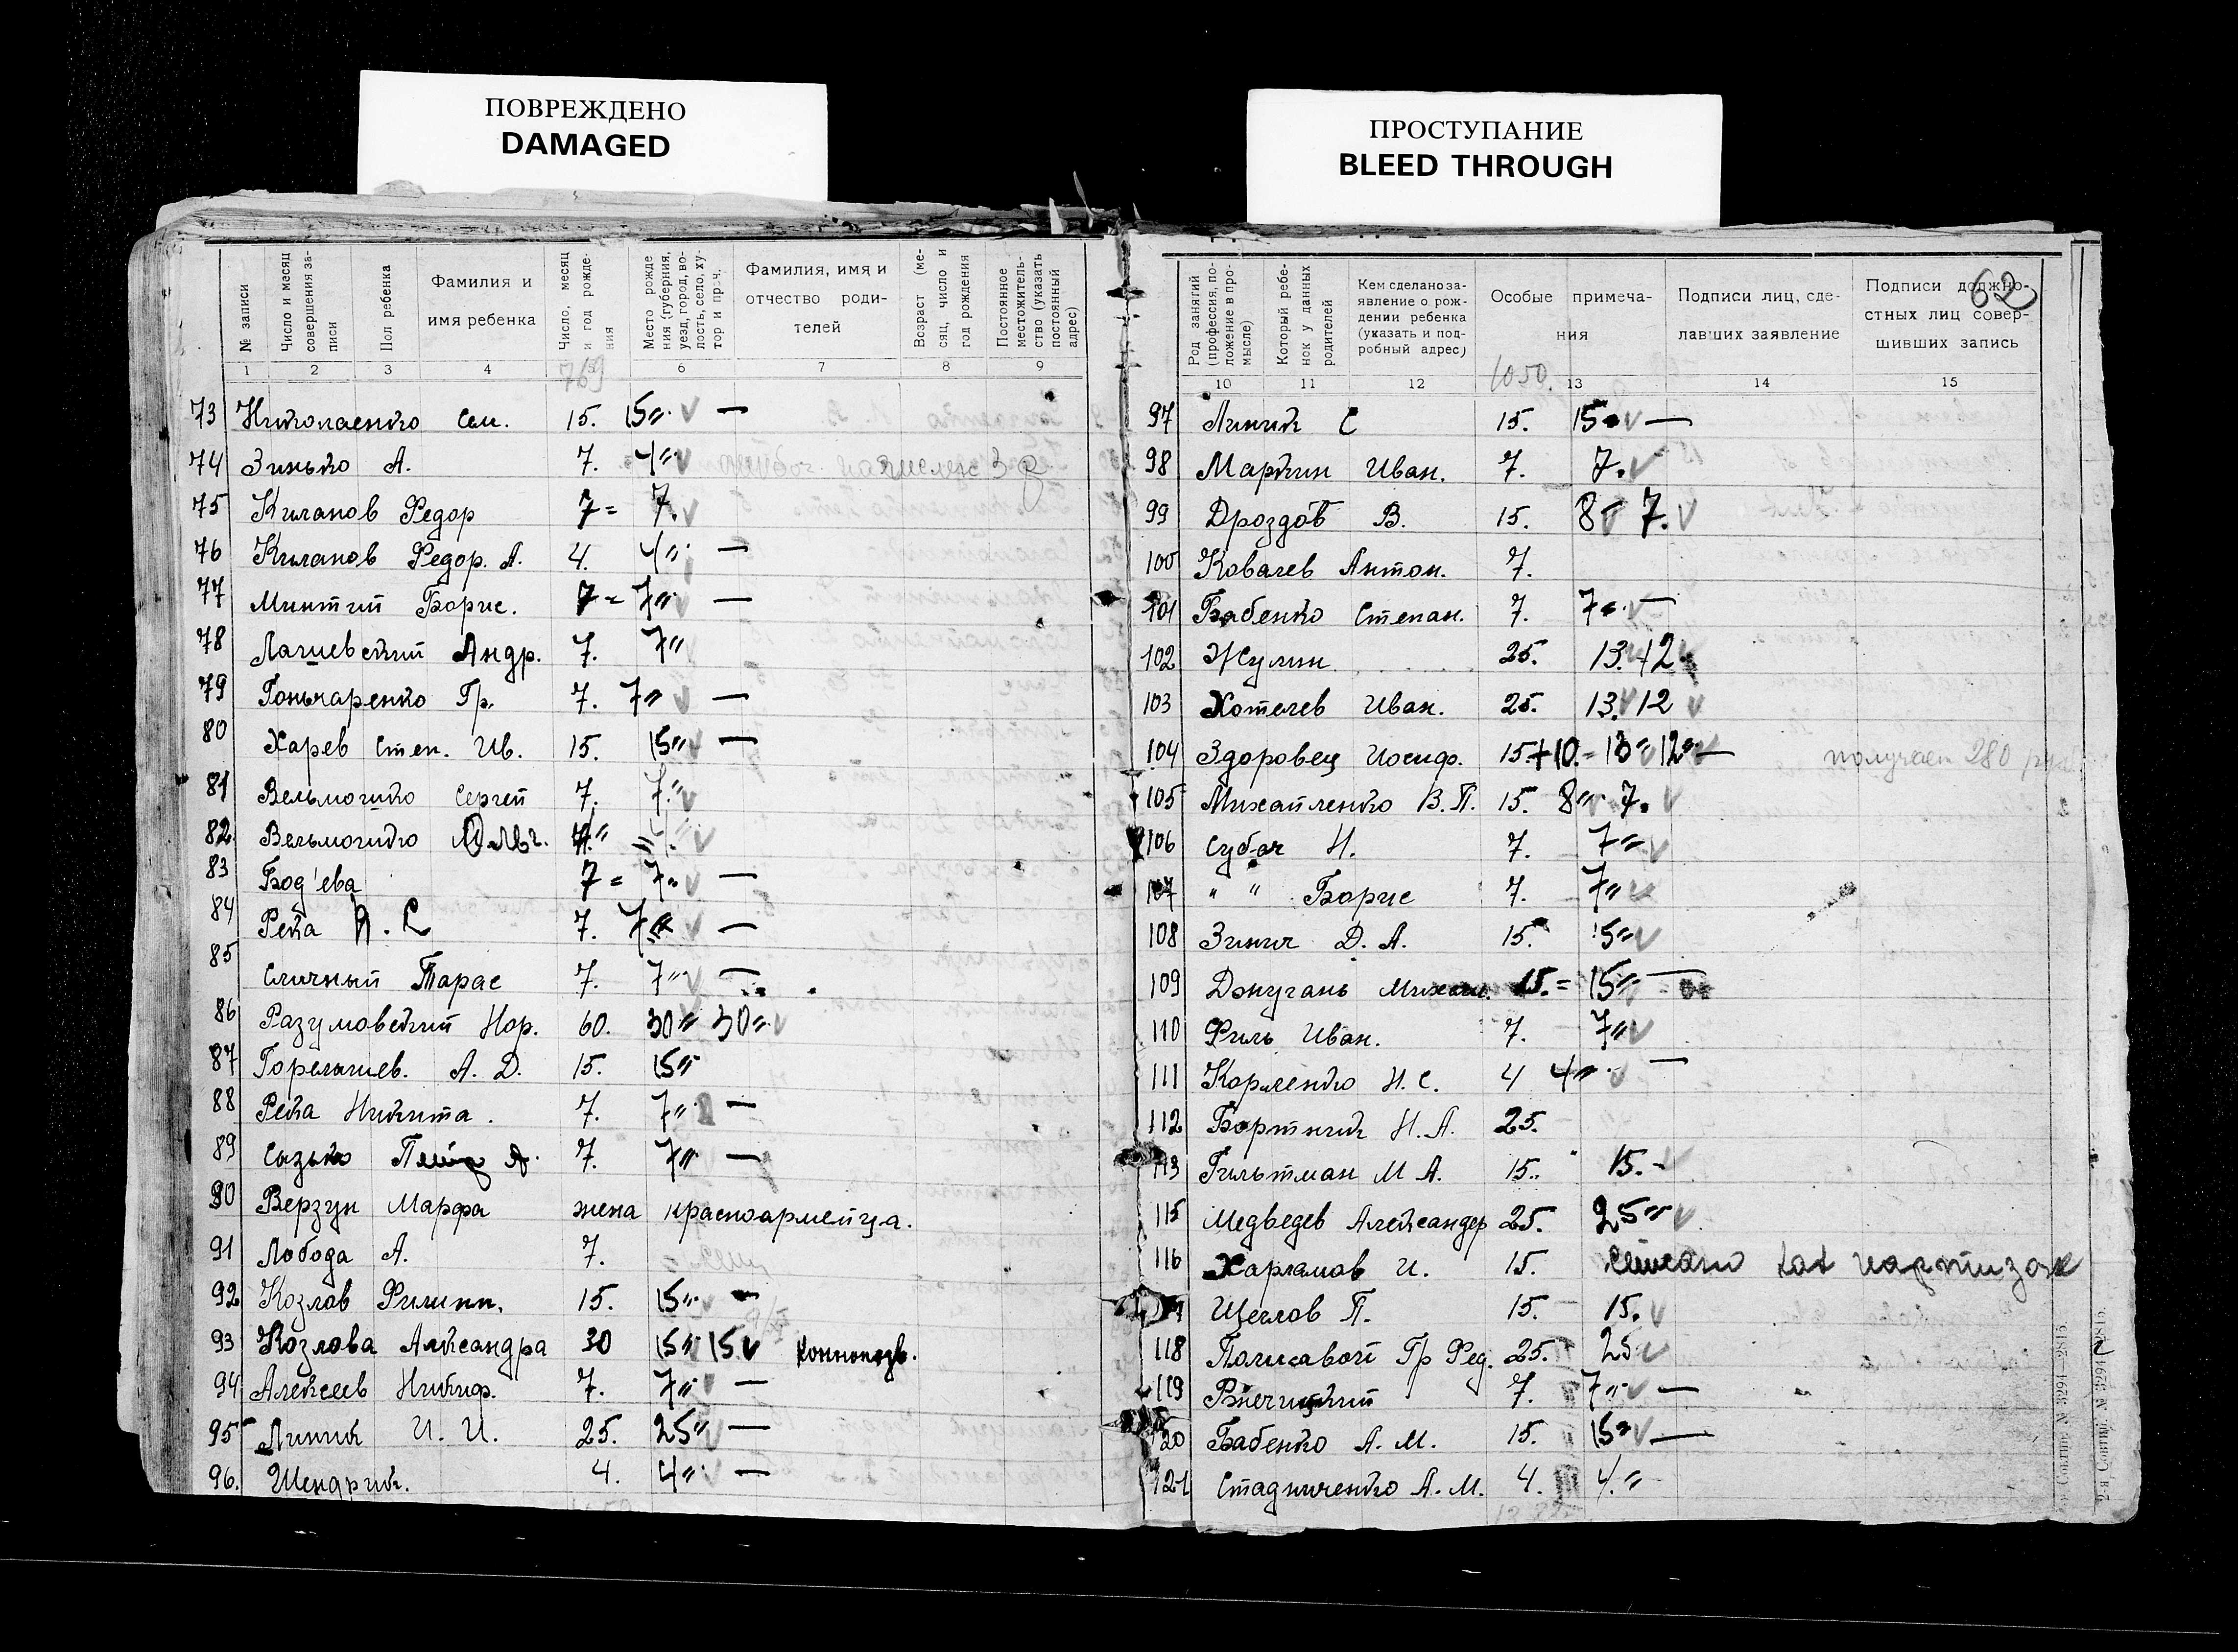 ПОВРЕЖДЕНО
DAMAGED
ПРОСТУПАНИЕ
BLEED THROUGH
№ записи
Число и месяц совершения записи
Пол ребенка
Фамилия и имя ребенка
Число, месяц и год рождения
Место рождения (губерния, уезд, город, волость, село, хутор и проч.
Фамилия, имя и отчество родителей
Возраст (месяц, число и год рождения
Постоянное местожительство (указать постоянный адрес)
1 2 3 4 6 7 8 9
769
73 Николаенко Сем. 15. 15" v —
74 Зинько А. 7. 4" v
75 Киланов Федор 7 = 7. v
76 Киланов Федор. А. 4. 4" —
77 Минтий Борис. 7 = 7" v —
78 Лагиевский Андр. 7. 7"
79 Гончаренко Гр. 7. 7" v —
80 Харев Степ. Ив. 15. 15" v —
81 Вельможко Сергей 7. 7." v
82 Вельможко
83 Бод'ева 7 = 7" v —
84 Река 7. 7" v —
85 Сличный Тарас 7. 7" v —
86 Разумовский Нор. 60. 30" 30" v
87 А. Д. 15. 15"
88 Река Никита. 7. 7" —
89 А. 7. 7" —
90 Верзун Марфа жена красноармейца.
91 Лобода А. 7.
92 Козлов Филипп. 15. 15" v —
93 Козлова Александра 30 15" 15 v
94 Алексеев Никиф. 7. 7" v —
95 Линик И. И. 25. 25" v —
96. Шендрик. 4. 4" v —
62
Род занятий (профессия, положение в промысле)
Который ребенок у данных родителей
Кем сделано заявление о рождении ребенка (указать и подробный адрес)
Особые примечания
Подписи лиц, сделавших заявление
Подписи должностных лиц совершивших запись
10 11 12 13 14 15
1050.
97 Линик С 15. 15 v —
98 Маркин Иван. 7. 7. v
99 Дроздов В. 15. 8 v 7. v
100 Ковалев Антон. 7.
101 Бабенко Степан. 7. 7 v —
102 Жулин 25. 13. v 12 v
103 Хотелев Иван. 25. 13. v 12 v
104 Здоровец Иосиф. 15 + 10 = 13" v 12" v — получает 280 руб
105 Михайленко В. П. 15. 8" 7. v
106 Субоч Н. 7. 7" v
107 " " Борис 7. 7" v
108 Зинич Д. А. 15. 15" v
109 Джугань Михаил. 15. = 15" —
110 Филь Иван. 7. 7" v
111 Корленко Н. С. 4 4" v —
112 Бортник Н. А. 25.
113 Гильтман М А. 15. 15. v
115 Медведев Александер 25. 25" v
116 Харламов И. 15. Списано как партизан
Щеглов П. 15. 15. v
118 Полисавой Гр Фед. 25. 25 v
119 7. 7" v —
120 Бабенко А. М. 15. 15" v —
121 Стадниченко А. М. 4. 4. "